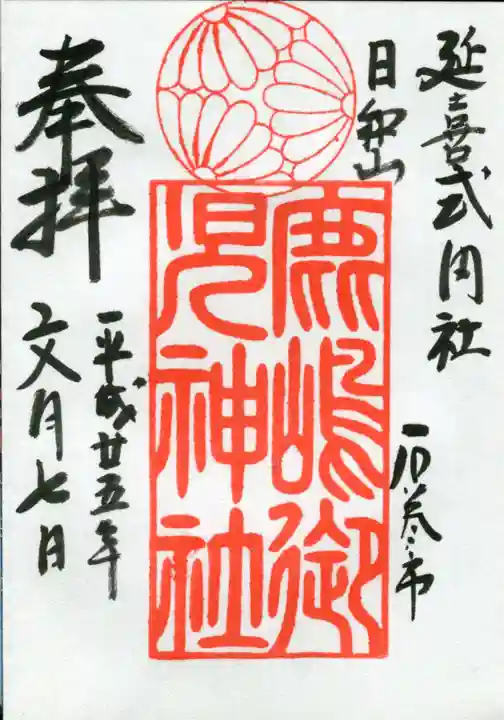 延喜式内社
石巻市
日和山
鹿嶋御
児神社
奉拝
平成廿五年
文月七日